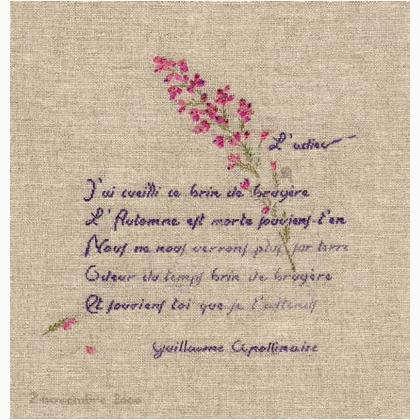 L'adieu
J'ai cueilli ce brin de bruyère
L'Automne est morte souviens-t'en
Nous ne nous verrons plus sur terre
Odeur du temps brin de bruyère
Et souviens toi que je t'attends
Guillaume Apollinaire
2 novembre 2000